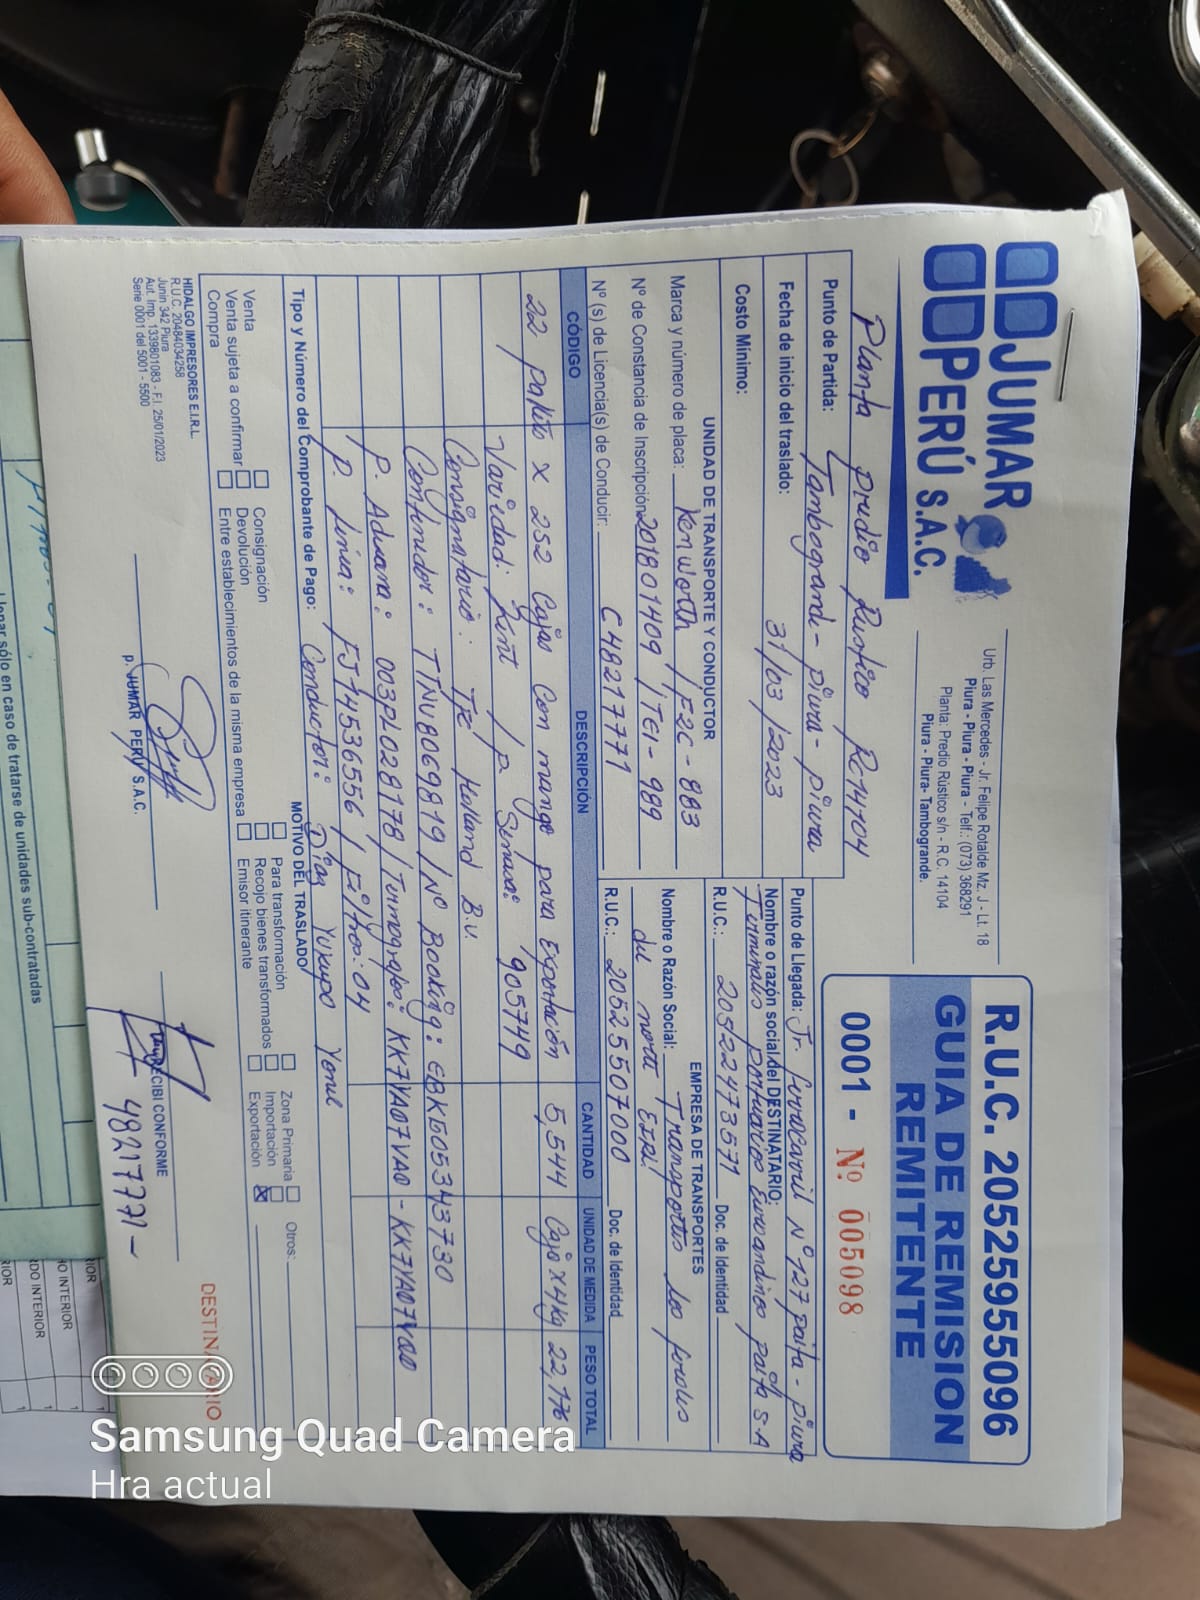 JUMAR
PERÚ S.A.C.
Urb. Las Mercedes - Jr. Felipe Rotalde Mz. J - Lt. 18
Piura - Piura - Piura - Telf.: (073) 368291
Planta: Predio Rústico s/n - R.C. 14104
Piura - Piura- Tambogrande.
R.U.C. 20525955096
GUIA DE REMISION
REMITENTE
0001 - Nº 005098
Planta predio Rustico Rc14104
Punto de Partida: Tambogrande- piura- piura
Fecha de inicio del traslado: 31/03/2023
Costo Mínimo:
Punto de Llegada: Jr. ferrocarril Nº 127 paita - piura
Nombre o razón social del DESTINATARIO:
Terminales portuarios Euroandinos paita S.A
R.U.C.: 20522473571 Doc. de Identidad
UNIDAD DE TRANSPORTE Y CONDUCTOR
Marca y número de placa: Kenworth / F2C - 883
Nº de Constancia de Inscripción: 201801409 / TE1 - 989
Nº (s) de Licencia(s) de Conducir: C48217771
EMPRESA DE TRANSPORTES
Nombre o Razón Social: Transportes los
del norte EIRL
R.U.C.: 20525507000 Doc. de Identidad
CÓDIGO DESCRIPCIÓN CANTIDAD UNIDAD DE MEDIDA PESO TOTAL
22 paleto x 252 Cajas Con mango para Exportación 5,544 Caja x4kg 22,176
Variedad: Kent / p. Senasa: 905749
Consignatario: TFE Holland B.V.
Contenedor: TTNU8069819 / Nº Booking: EBKG05343730
P. Aduana: 003PL028178 / Termografo: KK7VA07VA0 - KK7VA07V00
P. Linea: FJ14536556 / Filtros: 04
Tipo y Número del Comprobante de Pago: Conductor: Díaz Yukupo Yonel
MOTIVO DEL TRASLADO
Venta
Venta sujeta a confirmar
Compra
Consignación
Devolución
Entre establecimientos de la misma empresa
Para transformación
Recojo bienes transformados
Emisor itinerante
Zona Primaria
Importación
Exportación X
Otros:
HIDALGO IMPRESORES E.I.R.L.
R.U.C. 20484034258
Junin 342 Piura
Aut. Imp. 1339801083 - F.I. 25/01/2023
Serie 0001 del 5001 - 5500
p. JUMAR PERÚ S.A.C.
RECIBI CONFORME
48217771 -
DESTINATARIO
llenar sólo en caso de tratarse de unidades sub-contratadas
IOR
O INTERIOR
DO INTERIOR
RIOR
Samsung Quad Camera
Hra actual